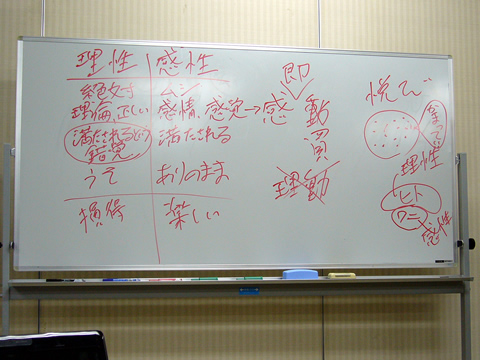 理性 感性
絶対 ムシ
理倫、正しい 感情、感覚→感動
満たされるという錯覚 満たされる
うそ ありのまま
損得 楽しい
即
買
理動
悦び
理性
ヒト
ワニ
感性